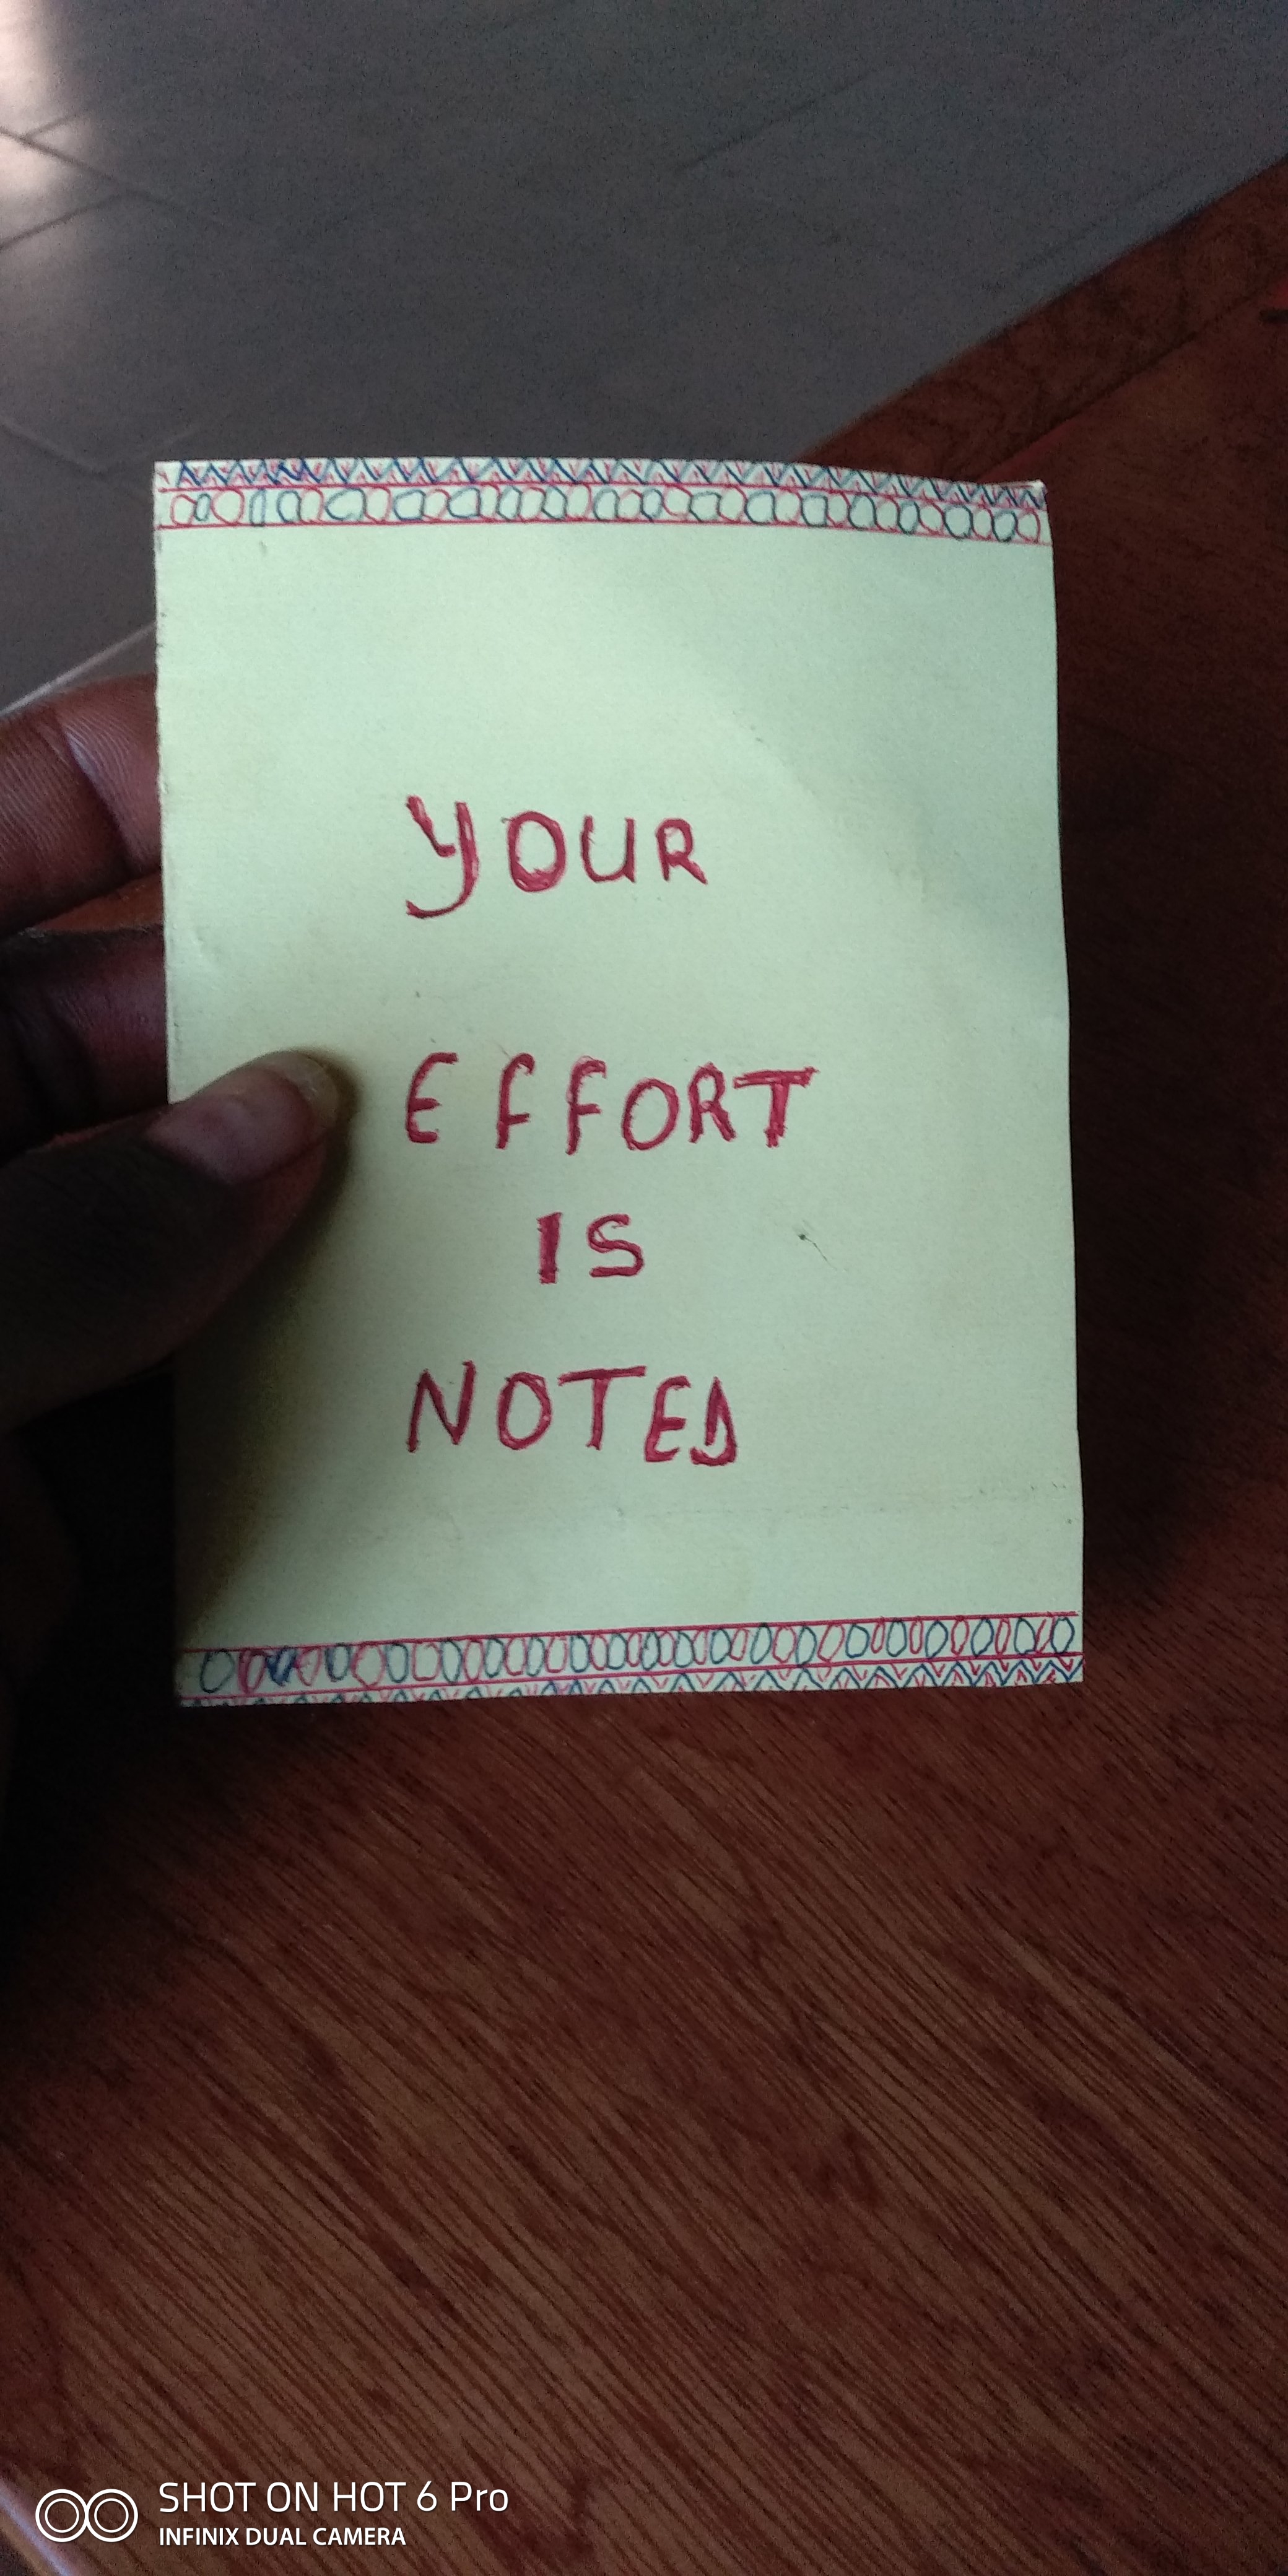 YOUR
EFFORT
IS
NOTED
SHOT ON HOT 6 Pro
INFINIX DUAL CAMERA